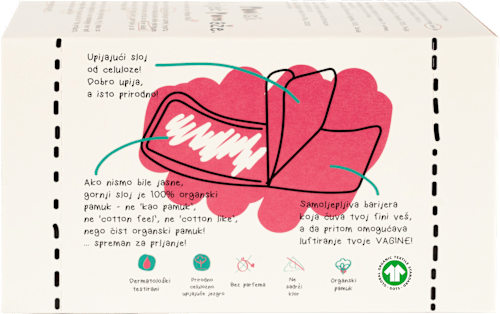 Upijajući sloj
od celuloze!
Dobro upija,
a isto prirodno!
Ako nismo bile jasne,
gornji sloj je 100% organski
pamuk - ne "kao pamuk",
ne "cotton feel", ne "cotton like",
nego čist organski pamuk!
... spreman za prljanje!
Samoljepljiva barijera
koja čuva tvoj fini veš,
a da pritom omogućava
luftiranje tvoje VAGINE!
Dermatološki
testirani
Prirodno
celulozno
upijajuće jezgro
Bez parfema
Ne
sadrži
hlor
Organski
pamuk
GOTS